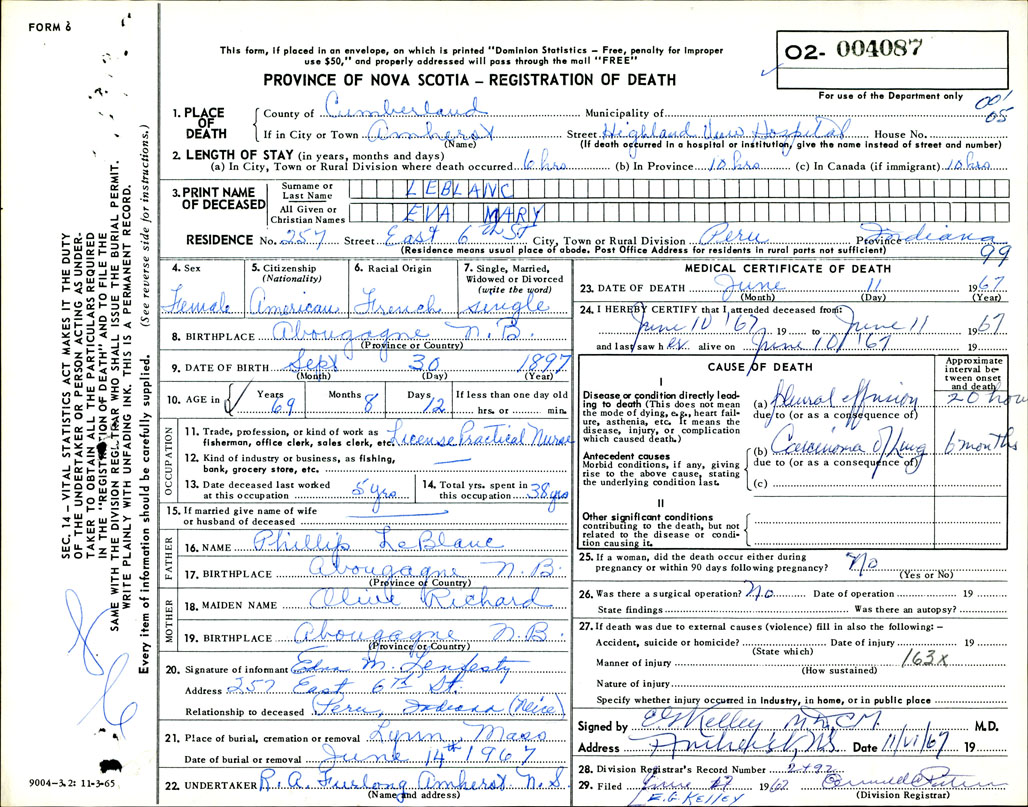 FORM 6
This form, if placed in an envelope, on which is printed "Dominion Statistics – Free, penalty for improper
use $50," and properly addressed will pass through the mail "FREE"
PROVINCE OF NOVA SCOTIA – REGISTRATION OF DEATH
O2- 004087
For use of the Department only
001
05
1. PLACE OF DEATH
County of Cumberland Municipality of
If in City or Town Amherst Street Highland View Hospital House No.
(Name) (If death occurred in a hospital or institution, give the name instead of street and number)
2. LENGTH OF STAY (in years, months and days)
(a) In City, Town or Rural Division where death occurred 6 hrs (b) In Province 10 hrs (c) In Canada (if immigrant) 10 hrs
3. PRINT NAME OF DECEASED
Surname or Last Name LEBLANC
All Given or Christian Names EVA MARY
RESIDENCE No. 257 Street East 6th St City, Town or Rural Division Peru Province Indiana
(Residence means usual place of abode. Post Office Address for residents in rural parts not sufficient)
99
4. Sex Female
5. Citizenship (Nationality) American
6. Racial Origin French
7. Single, Married, Widowed or Divorced (write the word) single
8. BIRTHPLACE Abougagne N.B.
(Province or Country)
9. DATE OF BIRTH Sept 30 1897
(Month) (Day) (Year)
10. AGE in Years 69 Months 8 Days 12 If less than one day old hrs. or min.
OCCUPATION
11. Trade, profession, or kind of work as
fisherman, office clerk, sales clerk, etc. License Practical Nurse
12. Kind of industry or business, as fishing,
bank, grocery store, etc. —
13. Date deceased last worked
at this occupation 5 yrs
14. Total yrs. spent in
this occupation 38 yrs
15. If married give name of wife
or husband of deceased
FATHER
16. NAME Phillip LeBlanc
17. BIRTHPLACE Abougagne N.B.
(Province or Country)
MOTHER
18. MAIDEN NAME Olive Richard
19. BIRTHPLACE Abougagne N.B.
(Province or Country)
20. Signature of informant Edna M. Lenfesty
Address 257 East 6th St.
Relationship to deceased Peru, Indiana (Neice)
21. Place of burial, cremation or removal Lynn, Mass
Date of burial or removal June 14th 1967
22. UNDERTAKER R.A. Furlong Amherst N.S.
(Name and address)
MEDICAL CERTIFICATE OF DEATH
23. DATE OF DEATH June 11 1967
(Month) (Day) (Year)
24. I HEREBY CERTIFY that I attended deceased from:
June 10 '67 19 to June 11 1967
and last saw her alive on June 10/'67 19
CAUSE OF DEATH
Approximate interval between onset and death
I
Disease or condition directly leading to death (This does not mean the mode of dying, e.g., heart failure, asthenia, etc. It means the disease, injury, or complication which caused death.)
(a) pleural effusion 20 hou
due to (or as a consequence of)
Antecedent causes
Morbid conditions, if any, giving rise to the above cause, stating the underlying condition last.
(b) Carcinoma of lung 6 months
due to (or as a consequence of)
(c)
II
Other significant conditions
contributing to the death, but not related to the disease or condition causing it.
25. If a woman, did the death occur either during
pregnancy or within 90 days following pregnancy? No
(Yes or No)
26. Was there a surgical operation? No Date of operation 19
State findings Was there an autopsy?
27. If death was due to external causes (violence) fill in also the following: –
Accident, suicide or homicide? Date of injury 19
(State which)
Manner of injury 163x
(How sustained)
Nature of injury
Specify whether injury occurred in Industry, in home, or in public place
Signed by EG Kelley MDCM M.D.
Address Amherst, N.S. Date 11/VI/67 19
28. Division Registrar's Record Number 2492
29. Filed June 1967
(Division Registrar)
E.G. KELLEY
SEC. 14 – VITAL STATISTICS ACT MAKES IT THE DUTY
OF THE UNDERTAKER OR PERSON ACTING AS UNDERTAKER
TO OBTAIN ALL THE PARTICULARS REQUIRED
IN THE "REGISTRATION OF DEATH" AND TO FILE THE
SAME WITH THE DIVISION REGISTRAR WHO SHALL ISSUE THE BURIAL PERMIT.
WRITE PLAINLY WITH UNFADING INK. THIS IS A PERMANENT RECORD.
Every item of information should be carefully supplied. (See reverse side for instructions.)
9004-3.2: 11-3-65